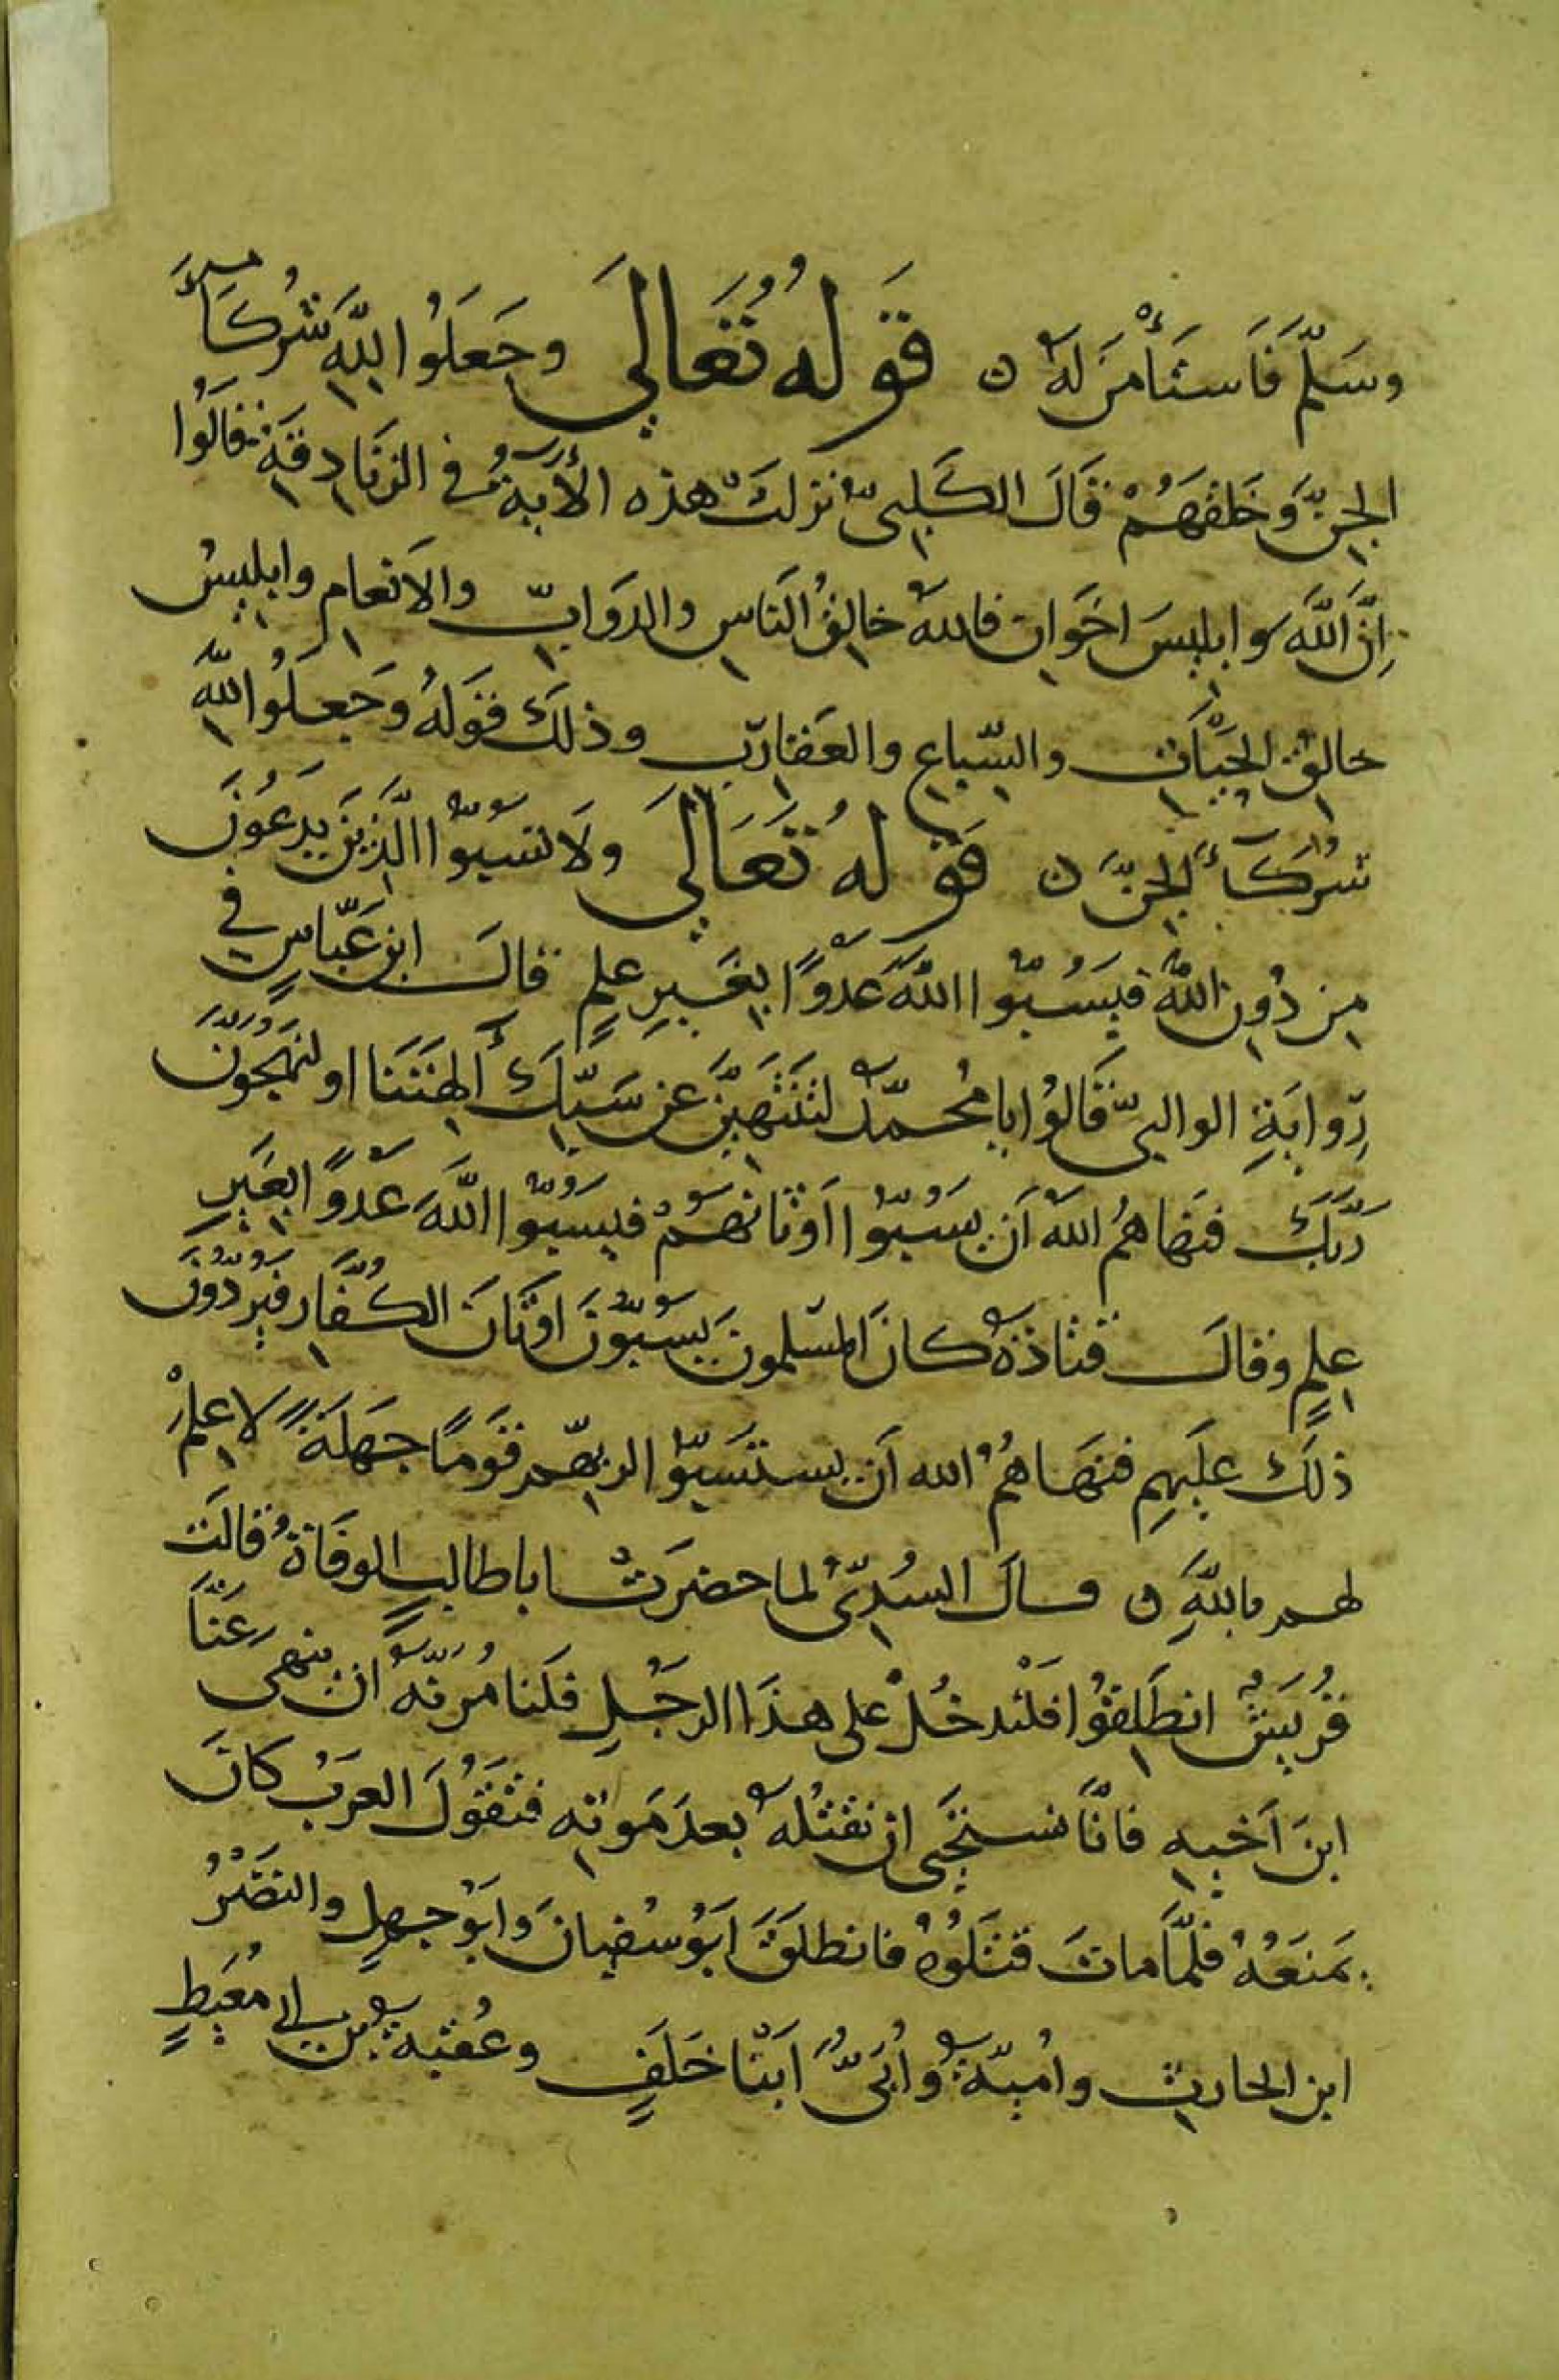 وسَلَّم فَاستَأْمَرَ لَهُ ن قَولهُ تَعَالىَ وجَعَلُوا للّهِ شُركَآءَ
الجِنَّ وَخَلَقَهُمْ قَالَ الكَلبىّ نزلتْ هذه الأيَةُ في الزنَادِقَةِ قَالُوا
اِنَّ اللَّهَ وابليسَ اخَوانِ فاللهُ خالِقُ النَاسِ والدوَابِّ والانعامِ وابليسُ
خالِقُ الحَيَّاتِ والسِّباعِ والعَقَارِبِ وذلكَ قَولهُ وَجَعلُوا للّهِ
شُركَآءَ الجِنَّ ن قَولهُ تَعَالىَ ولَا تسُبّوا الَّذِينَ يَدعُونَ
مِن دُونِ اللّهِ فيَسُبّوا اللّهَ عَدْوًا بِغَيرِ عِلمٍ قالَ ابن عَبّاسٍ في
رِوايَةِ الوالبىّ قَالُوا يا مُحمّدُ لتَنتَهيَنَّ عن سَبّكَ الِهتَنَا او لنَهجُونَّ
رَبَّكَ فنَهاهُمُ اللهُ اَن يسُبّوا اَوثانهُمْ فيسُبّوا اللَّهَ عَدْوًا بغَيرِ
عِلمٍ وقالَ قتادَةُ كانَ المسلمونَ يسُبّونَ اوثَانَ الكُفَّارِ فيَرُدّونَ
ذلكَ علَيهِم فنَهَاهُمُ الله اَن يستَسِبّوا لربّهِم قَومًا جَهَلَةً لا عِلمَ
لهم باللّهِ ن قالَ السُدّىُّ لما حضرَتْ اباطالبٍ الوفَاةُ قالت
قُرَيشٌ انطَلِقُوا فلْنَدخُلْ على هذَا الرجُلِ فلَنامُرَنّهُ ان ينهى عَنّا
ابنَ اَخيهِ فانّا نستَحيى ان نقتُلَهُ بعدَ مَوتِه فتَقُولَ العرَبُ كانَ
يَمنَعُهُ فلمّا ماتَ قتَلُوهُ فانطلَقَ ابَوُ سُفيانَ وابَوُ جهلٍ والنضْرُ
ابن الحارِثِ وامُيّةُ وابُىُّ ابنَا خلَفٍ وعُقبةُ بن ابى مُعَيطٍ